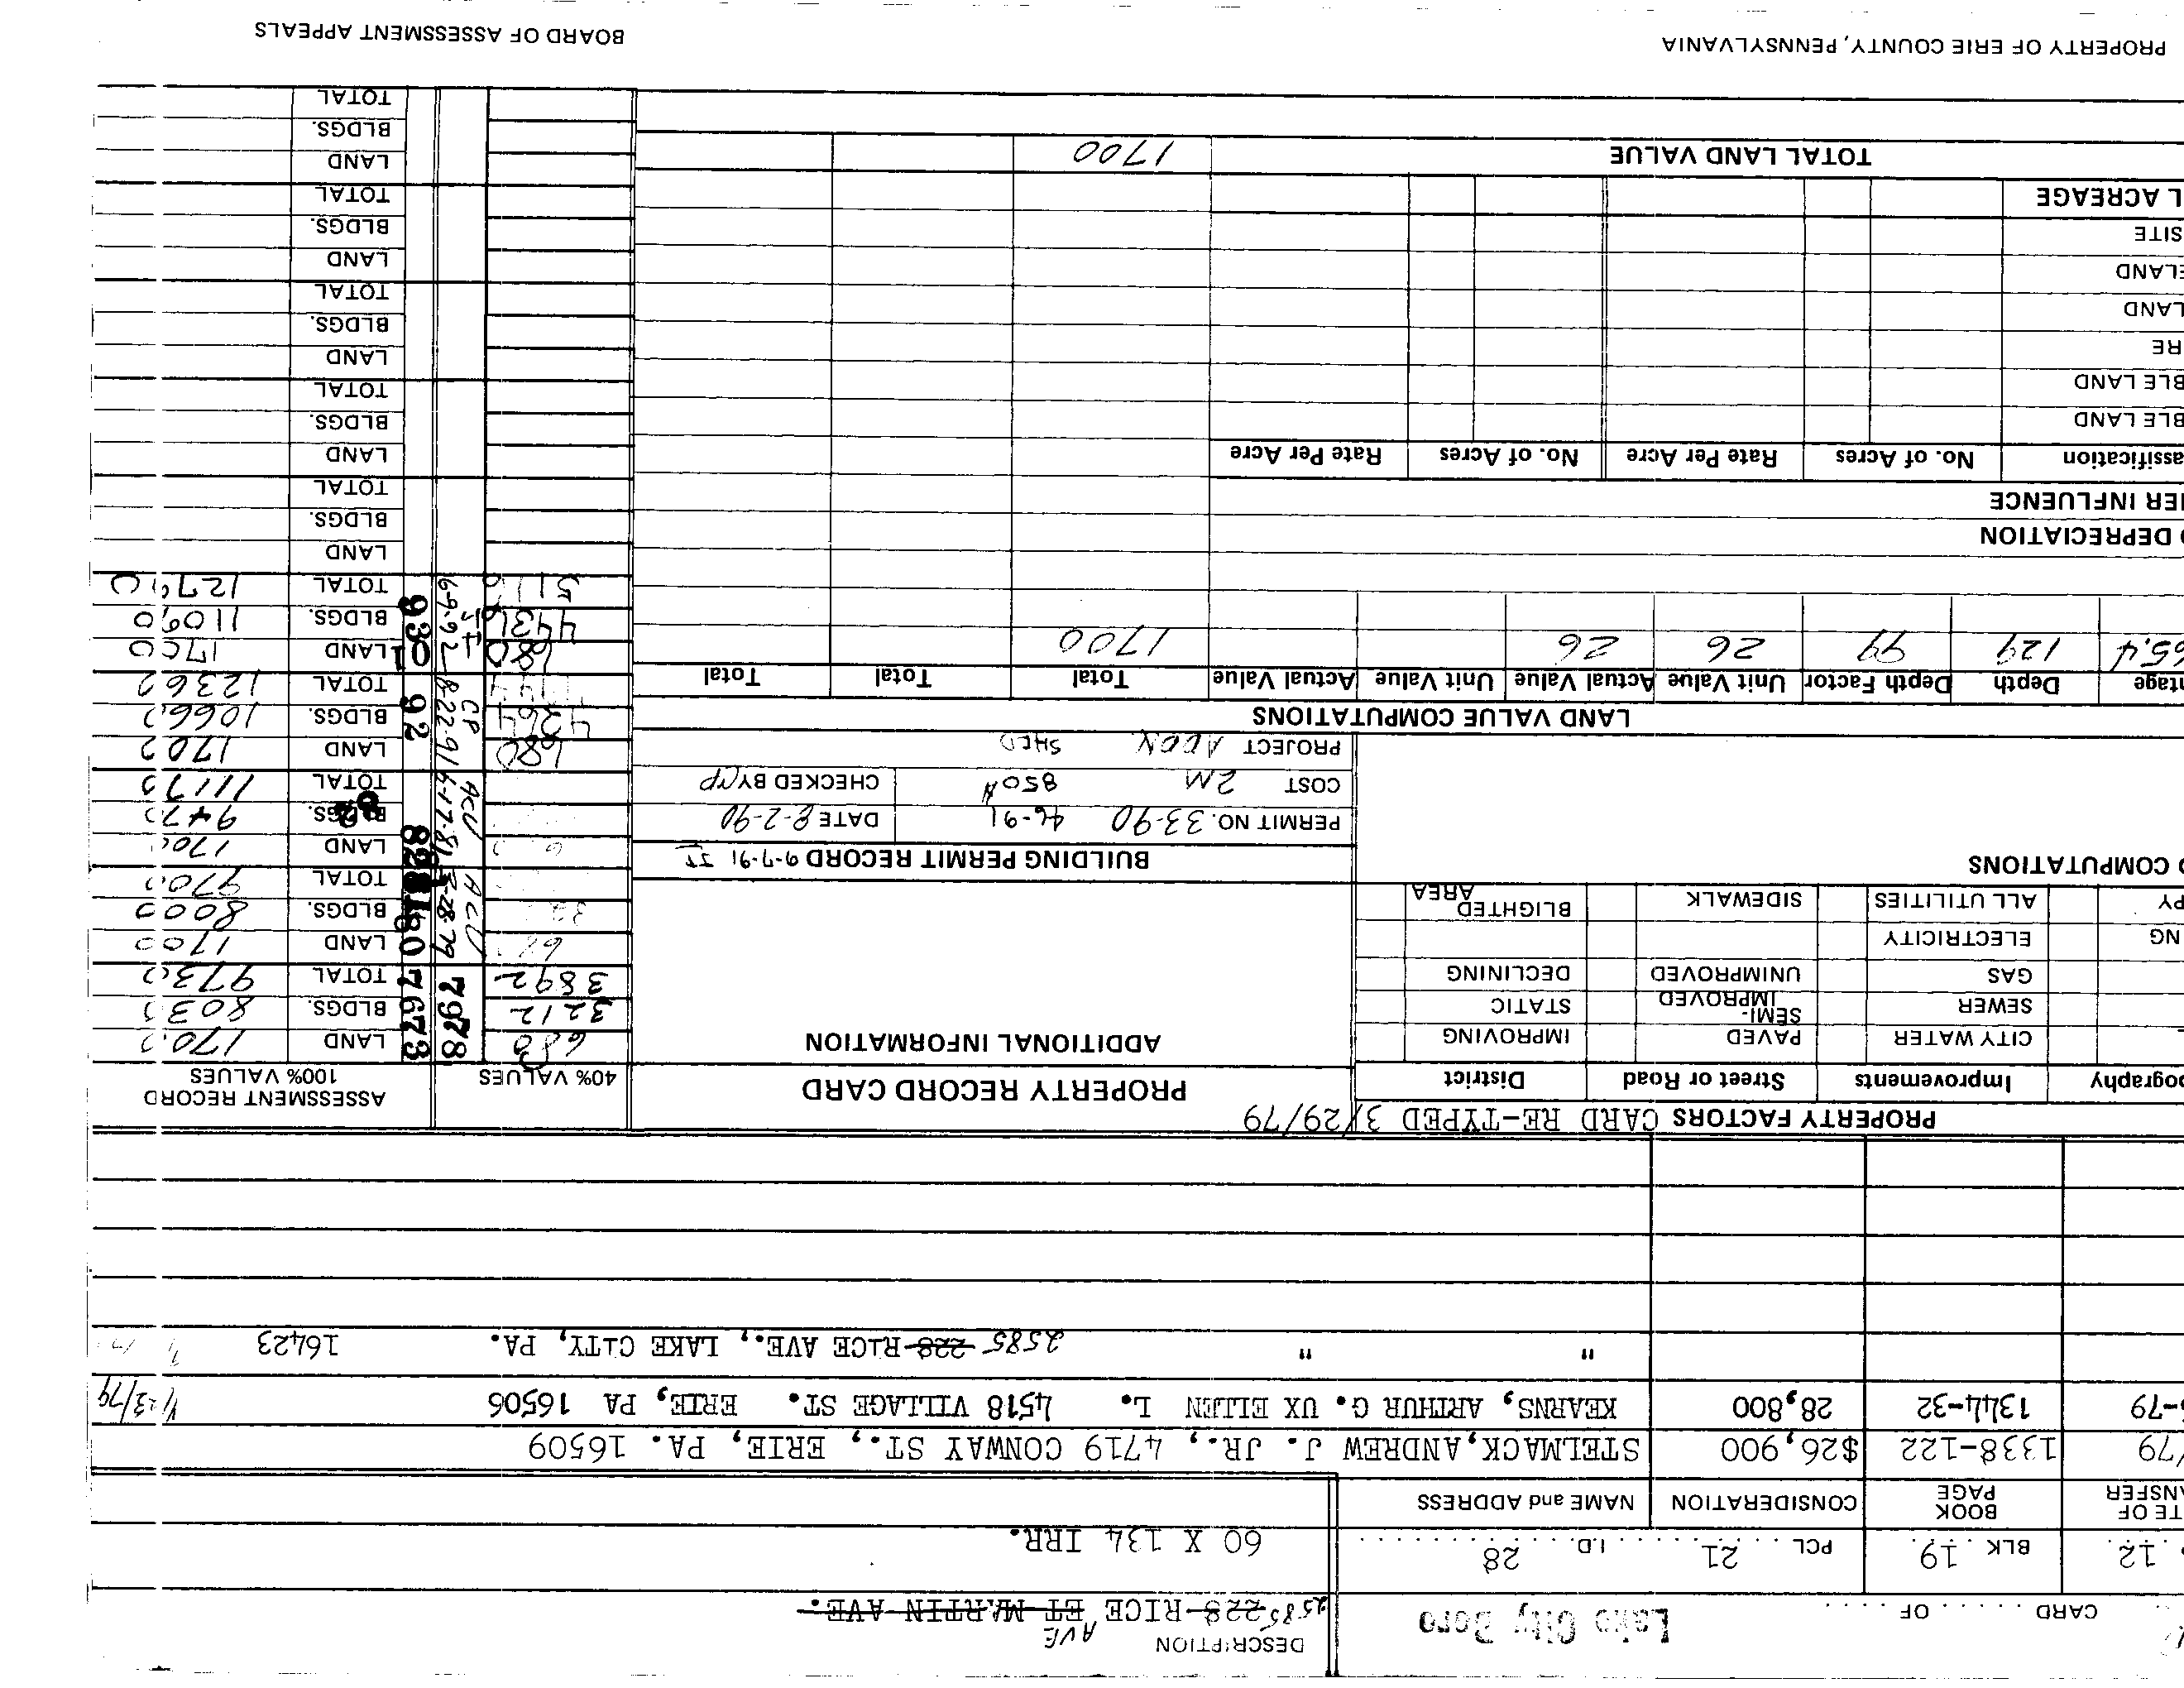 DESCRIPTION
Lake City Boro
CARD ...... OF ......
2585 228 RICE AVE ET MARTIN AVE.
12 BLK 19 PCL 21 I.D. 28
60 X 134 IRR.
TE OF NSFER BOOK PAGE CONSIDERATION NAME and ADDRESS
/79 1338-122 $26,900 STELMACK, ANDREW J. JR., 4719 CONWAY ST., ERIE, PA. 16509
-79 1344-32 28,800 KEARNS, ARTHUR G. UX EILEEN L. 4518 VILLAGE ST. ERIE, PA 16506
" " 2585 228 RICE AVE., LAKE CITY, PA. 16423
PROPERTY FACTORS CARD RE-TYPED 3/29/79
ography Improvements Street or Road District
CITY WATER PAVED IMPROVING
SEWER SEMI-IMPROVED STATIC
GAS UNIMPROVED DECLINING
NG ELECTRICITY
PY ALL UTILITIES SIDEWALK BLIGHTED AREA
COMPUTATIONS
PROPERTY RECORD CARD
ADDITIONAL INFORMATION
BUILDING PERMIT RECORD 9-7-91
PERMIT NO. 33-90 46-91 DATE 8-2-90
COST 2M 850 CHECKED BY CP
PROJECT ADDN. SHED
40% VALUES ASSESSMENT RECORD 100% VALUES
680 7978 7673 LAND 1700
3212 BLDGS. 8030
3892 TOTAL 9730
3-28-79 ACU 80 LAND 1700
BLDGS. 8000
TOTAL 9700
6-17-81 ACU 82 LAND 1700
BLDGS. 9470
TOTAL 11170
680 8-22-91 CP 92 LAND 1700
4264 BLDGS. 10660
TOTAL 12360
680 6-9-92 93 LAND 1700
4436 BLDGS. 11090
5116 TOTAL 12790
LAND
BLDGS.
TOTAL
LAND
BLDGS.
TOTAL
LAND
BLDGS.
TOTAL
LAND
BLDGS.
TOTAL
LAND
BLDGS.
TOTAL
LAND VALUE COMPUTATIONS
ntage Depth Depth Factor Unit Value Actual Value Unit Value Actual Value Total Total Total
65.4 129 99 26 26 1700
DEPRECIATION
ER INFLUENCE
assification No. of Acres Rate Per Acre No. of Acres Rate Per Acre
BLE LAND
BLE LAND
RE
LAND
ELAND
SITE
L ACREAGE
TOTAL LAND VALUE 1700
PROPERTY OF ERIE COUNTY, PENNSYLVANIA BOARD OF ASSESSMENT APPEALS